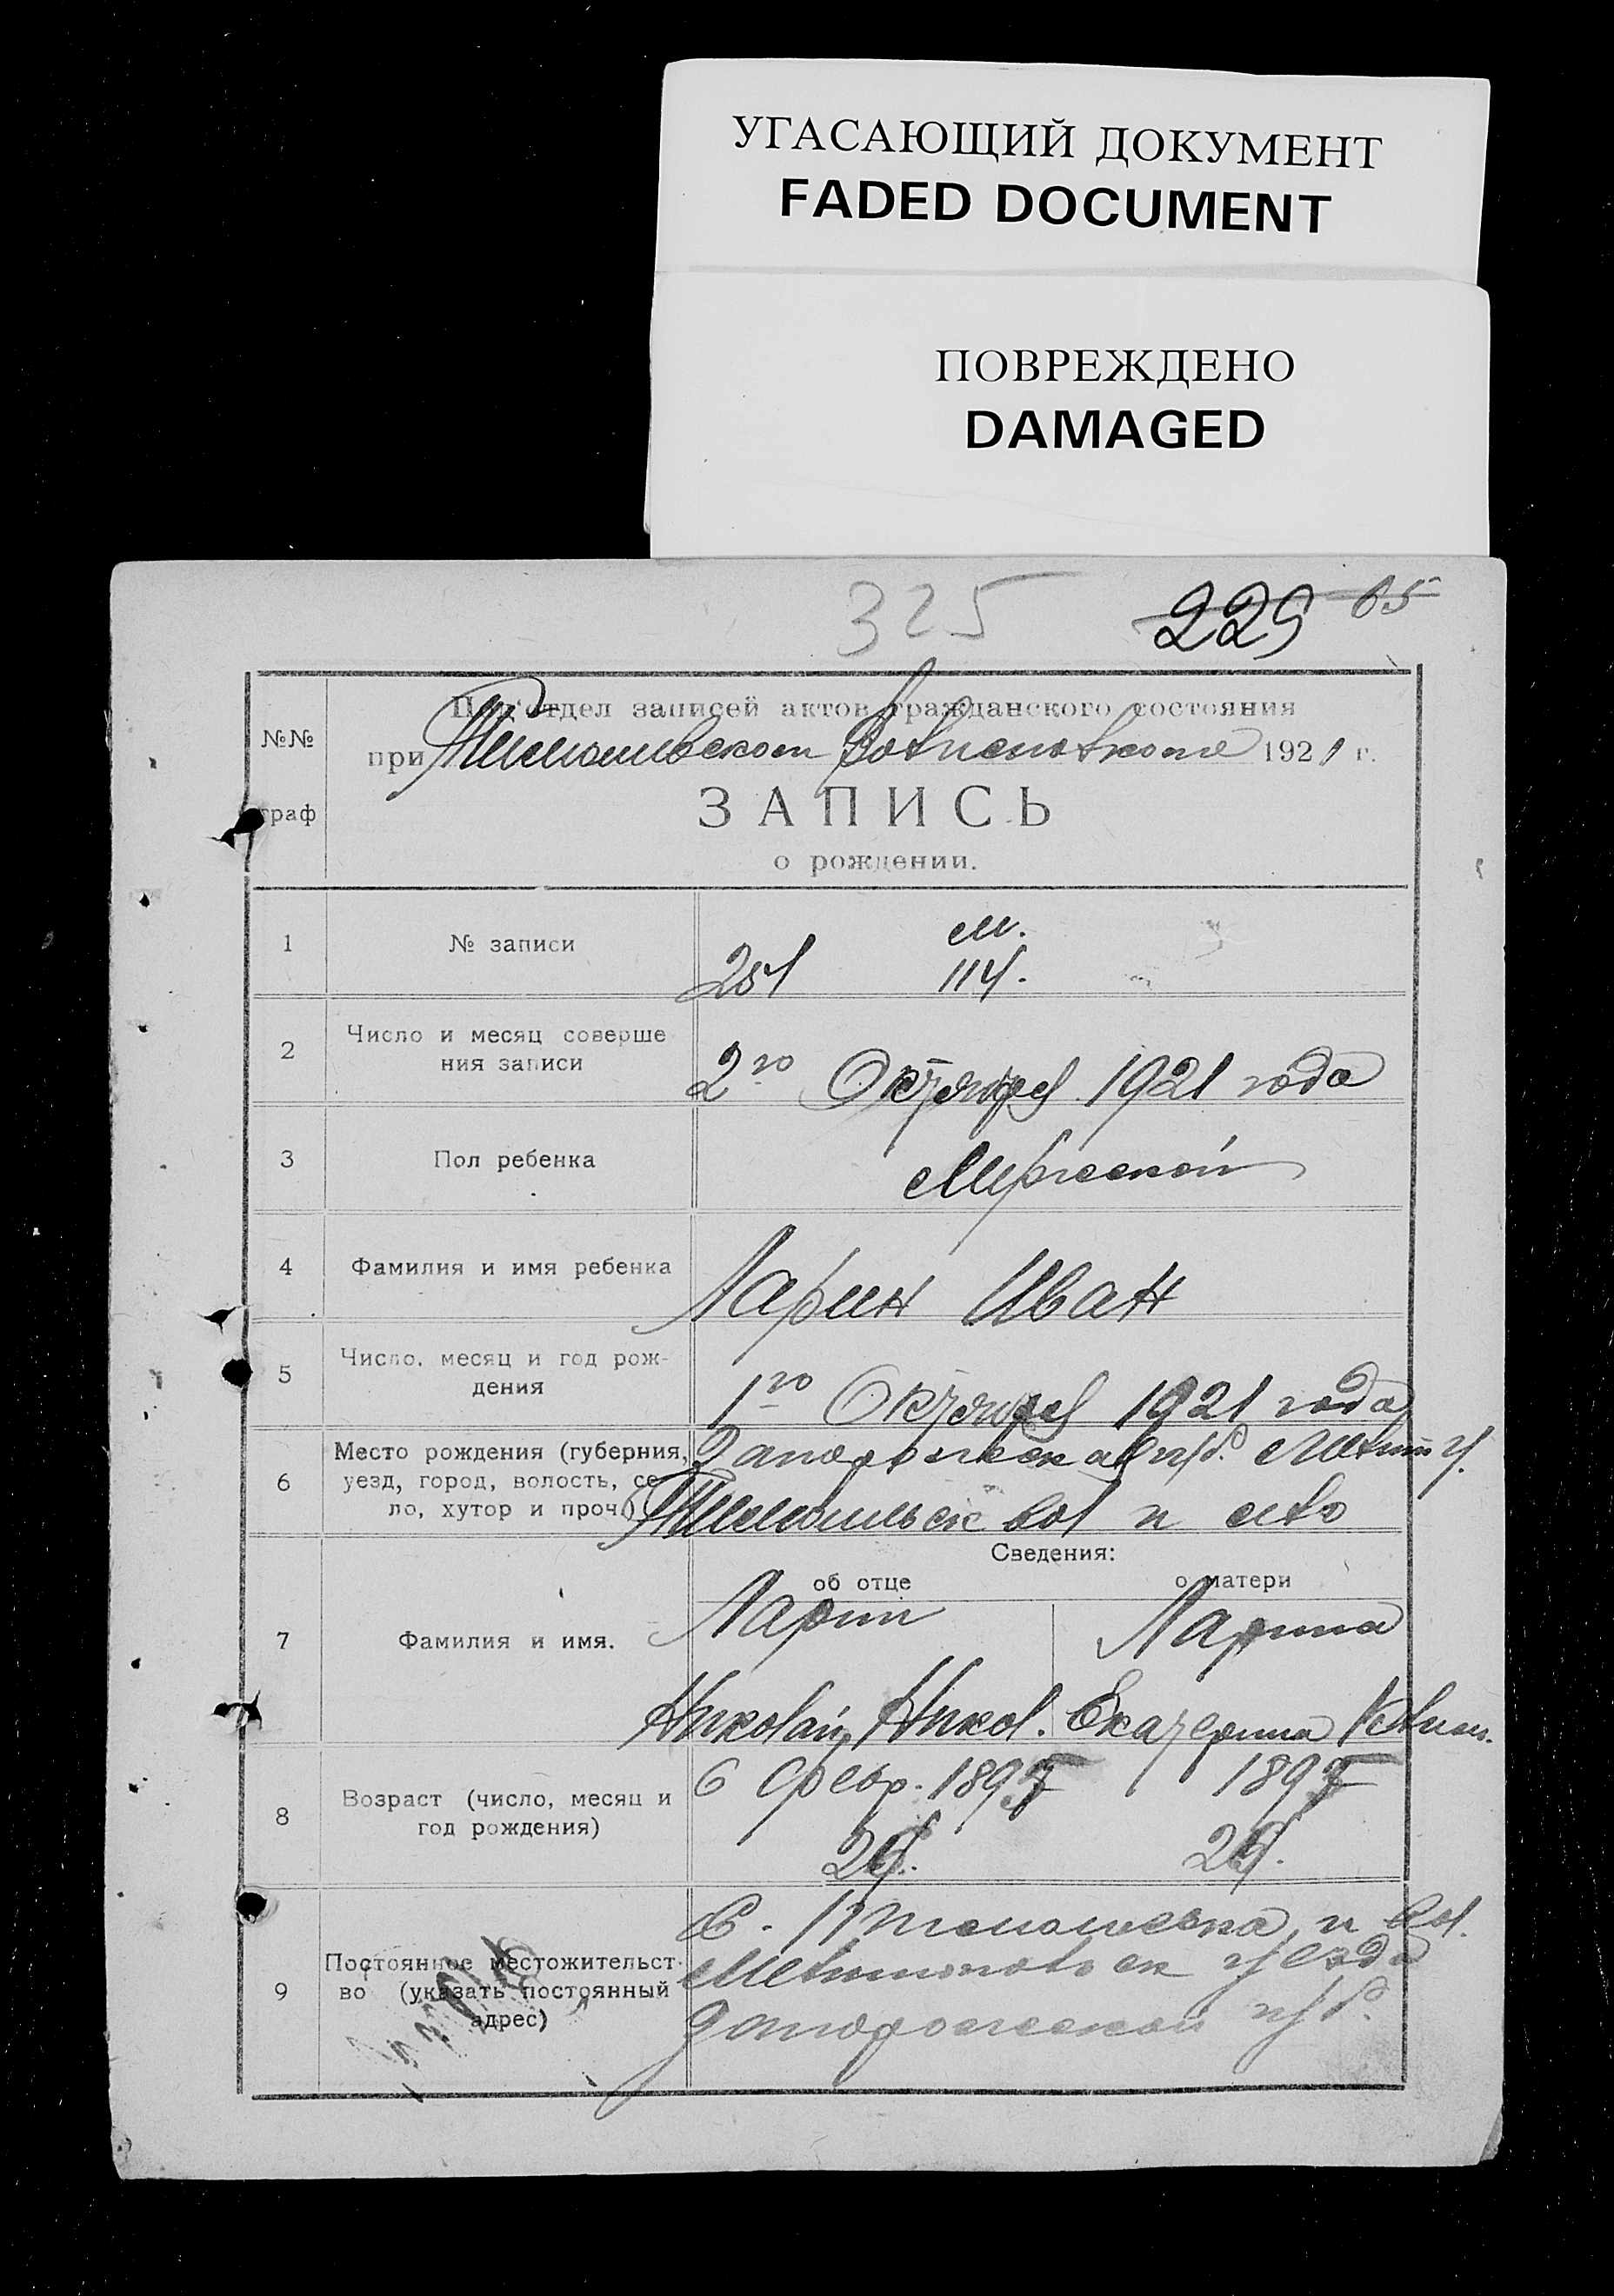 УГАСАЮЩИЙ ДОКУМЕНТ
FADED DOCUMENT
ПОВРЕЖДЕНО
DAMAGED
325 225 65
Под‘отдел записей актов гражданского состояния
№№ при Тимошивском Волисполкоме 1921 г.
граф
ЗАПИСЬ
о рождении.
1 № записи 251 м. 114.
2 Число и месяц соверше
ния записи 2го Октября 1921 года
3 Пол ребенка Мужеской
4 Фамилия и имя ребенка Ларин Иван
5 Число, месяц и год рож-
дения 1го Октября 1921 года
6 Место рождения (губерния, Запорожская губ. Мелит у.
уезд, город, волость, се
ло, хутор и проч.) Тимошивск вол и село
Сведения:
об отце о матери
7 Фамилия и имя. Ларин Ларина
Николай Никол. Екатерина
8 Возраст (число, месяц и 6 Февр. 1897 1897
год рождения) 24. 24.
9 Постоянное местожительст- С. Тимошевка и вол.
во (указать постоянный Мелитопольск уезда
адрес) Запорожской губ.